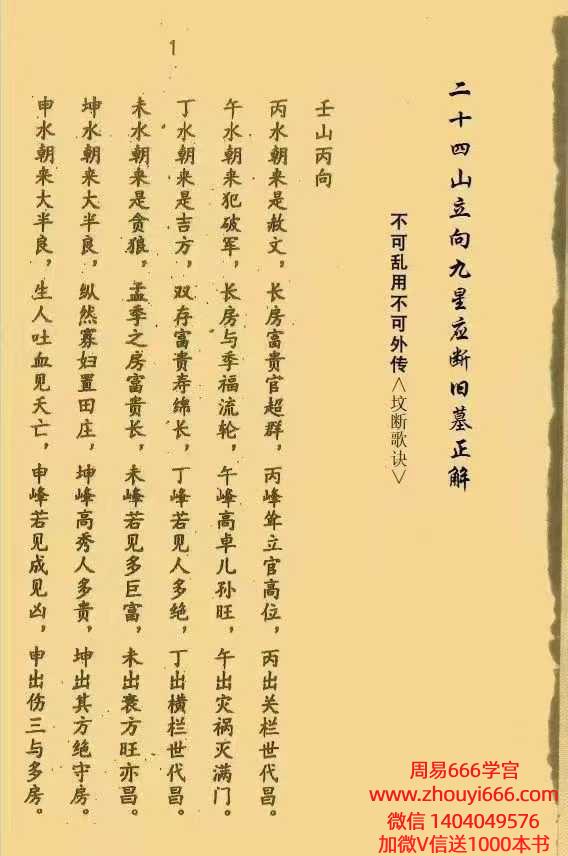 二十四山立向九星应断旧墓正解
不可乱用不可外传<坟断歌诀>
壬山丙向
丙水朝来是赦文，长房富贵官超群，丙峰耸立官高位，丙出关栏世代昌。
午水朝来犯破军，长房与季福流轮，午峰高卓儿孙旺，午出灾祸灭满门。
丁水朝来是吉方，双存富贵寿绵长，丁峰若见人多绝，丁出横栏世代昌。
未水朝来是贪狼，孟季之房富贵长，未峰若见多巨富，未出衰方旺亦昌。
坤水朝来大半良，纵然寡妇置田庄，坤峰高秀人多贵，坤出其方绝守房。
申水朝来大半良，生人吐血见夭亡，申峰若见成见凶，申出伤三与多房。
1
周易666学宫
www.zhouyi666.com
微信 1404049576
加微V信送1000本书